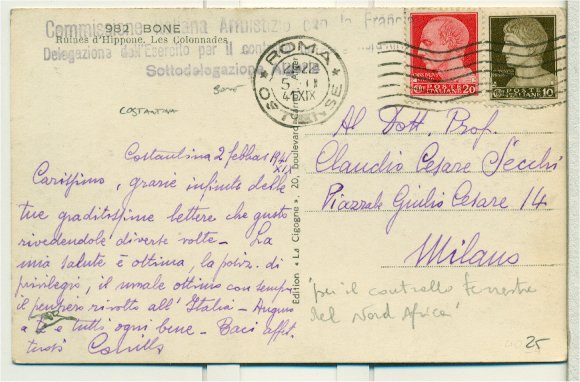 982 BONE
Ruines d'Hippone. Les Colonnades.
Commissione Italiana Armistizio con la Francia
Delegazione dell'Esercito per il
Sottodelegazione
ROMA
OSTIENSE
41 XIX
POSTE ITALIANE 20
POSTE ITALIANE 10
COSTANTINA
Costantina 2 febbraio 1941
XIX
Carissimo, grazie infinite delle
tue graditissime lettere che gusto
rivedendole diverse volte - La
mia salute è ottima, la posiz. di
privilegio, il morale ottimo con sempre
il pensiero rivolto all'Italia - Auguro
a te e tutti ogni bene - Baci affet
tuosi
Edition « La Cigogne », 20, boulevard
Al Dott. Prof.
Claudio Cesare Secchi
Piazzale Giulio Cesare 14
Milano
'per il controllo terrestre
del Nord Africa'
25